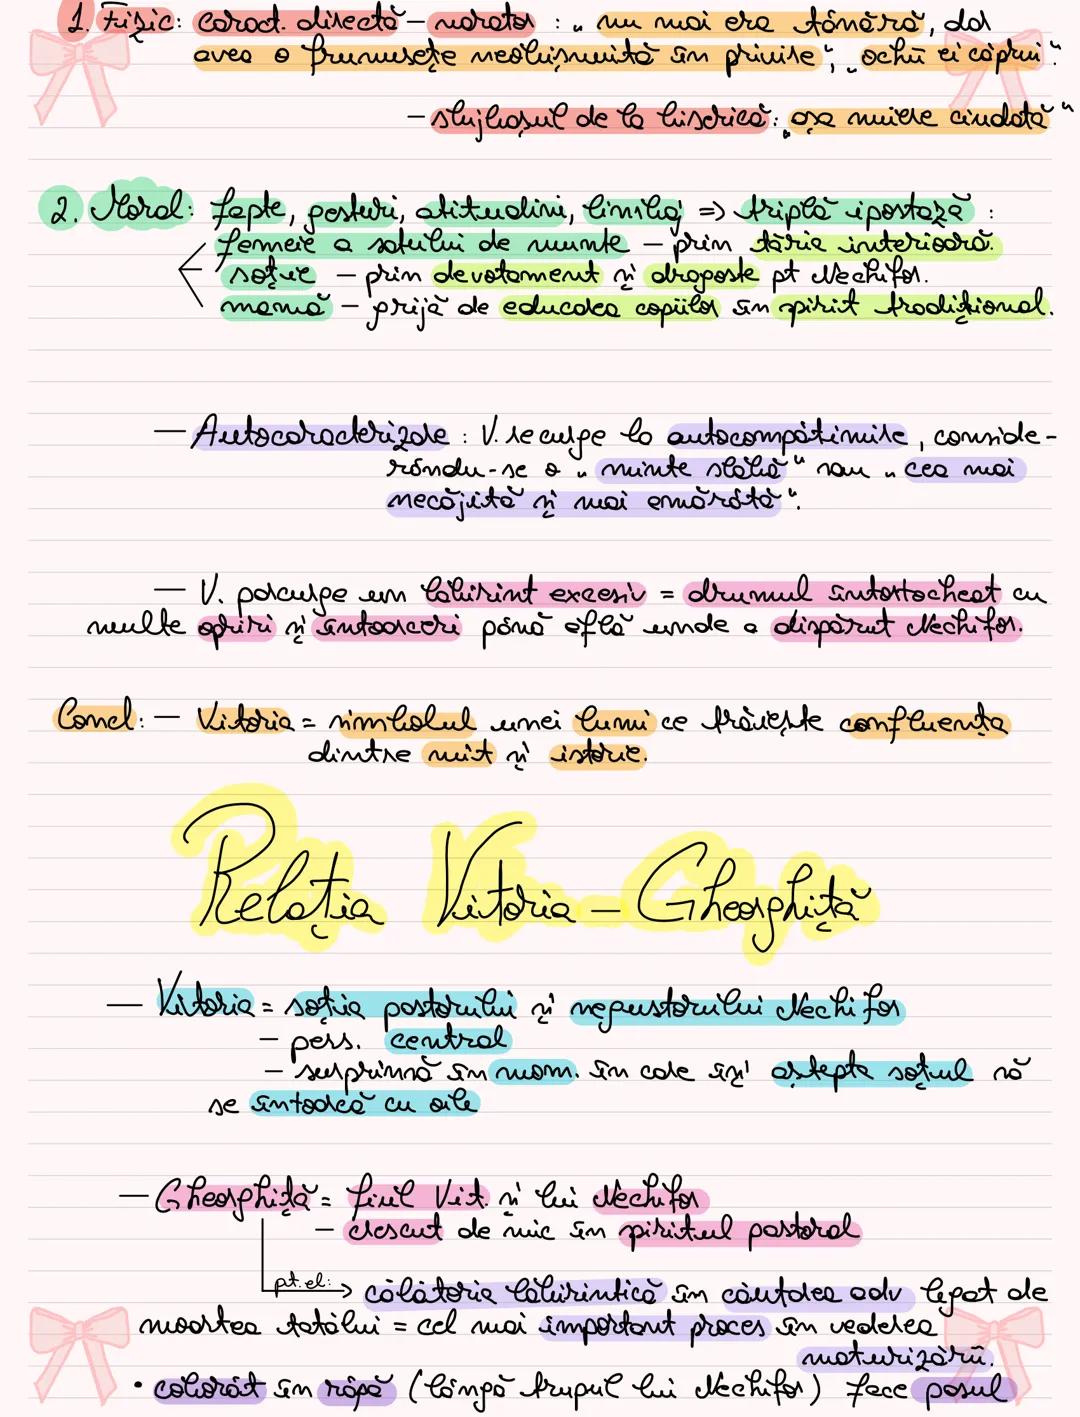 1. Fizic: caract. directă – narator : „ nu mai era tânără, dar
avea o frumusețe neobișnuită în privire"; „ochii ei căprui".
– slujbașul de la biserică: „așa muiere ciudată"
2. Moral: fapte, gesturi, atitudini, limbaj => triplă ipostază :
femeie a satului de munte – prin tăria interioară.
soție – prin devotament și dragoste pt Nechifor.
mamă – grijă de educarea copiilor în spirit tradițional.
– Autocaracterizare : V. recurge la autocompătimire, conside-
rându-se o „ minte slabă" sau „ cea mai
necăjită și mai amărâtă".
– V. parcurge un labirint excesiv = drumul întortocheat cu
multe opriri și întoarceri până află unde a dispărut Nechifor.
Concl: – Vitoria = simbolul unei lumi ce trăiește confluența
dintre mit și istorie.
Relația Vitoria – Gheorghiță
– Vitoria = soția păstorului și negustorului Nechifor
– pers. central
– surprinsă în mom. în care își aștepta soțul să
se întoarcă cu oile
– Gheorghiță = fiul Vit. și lui Nechifor
– crescut de mic în spiritul pastoral
pt. el: călătoria labirintică în căutarea adv legat de
moartea tatălui = cel mai important proces în vederea
maturizării.
• coborât în râpă (lângă trupul lui Nechifor) face pasul